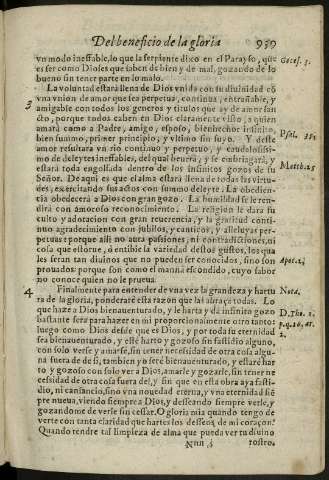 Del beneficio de la gloria 939
vn modo ineffable, lo que la serpiente dixo en el Parayso, que
es ser como Dioses que saben de bien y de mal, gozando de lo
bueno sin tener parte en lo malo.
La voluntad estarà llena de Dios vnida con su diuinidad cõ
vna vnion de amor que sea perpetua, continua, entrañable, y
amigable con todos los generos y titulos que ay de amor san
cto, porque todos caben en Dios claramente visto, a quien
amarà como a Padre, amigo, esposo, bienhechor infinito,
bien summo, primer principio, y vltimo fin suyo. Y deste
amor resultara vn rio continuo y perpetuo, y caudalosissi-
mo de deleytes inefables, del qual beuera, y se embriagarà, y
estarà toda engolfada dentro de los infinitos gozos de su
Señor. De aqui es que el alma estarà llena de todas las virtu-
des, exercitando sus actos con summo deleyte. La obedien-
cia obedecerà a Dios con gran gozo. La humildad se le ren-
dirà con amoroso reconocimiento. La religion le darà su
culto y adoracion con gran reuerencia, y la gratitud conti-
nuo agradecimiento con jubilos, y canticos, y alleluyas per-
petuas: porque alli no aura passiones, ni contradiciones, ni
cosa que estorue, ò entibie la variedad destos gustos, los qua
les seran tan diuinos que no pueden ser conocidos, sino son
prouados: porque son como el manná escondido, cuyo sabor
no conoce quien no le prueua.
Finalmente para entender de vna vez la grandeza y hartu
ra de la gloria, ponderarè esta razon que las abraça todas. Lo
que haze a Dios bienauenturado, y le harta y da infinito gozo
bastante serà para hazer en mi proporcionalmente otro tanto:
luego como Dios desde que es Dios, y por toda su eternidad
sea bienauenturado, y estè harto y gozoso sin fastidio alguno,
con solo verse y amarse, sin tener necessidad de otra cosa algu-
na fuera de si, tambien yo serè bienauenturado, y estarè har
to y gozoso con solo ver a Dios, amarle y gozarle, sin tener ne
cessidad de otra cosa fuera del, y sin que en esta obra aya fasti-
dio, ni cansancio, sino vna nouedad eterna, y vna eternidad siẽ
pre nueua, viendo siempre a Dios, y desseando siempre verle, y
gozandome de verle sin cessar. O gloria mia quando tengo de
verte con tanta claridad que hartes los desseos de mi coraçon?
Quando tendre tal limpieza de alma que pueda ver tu diuino
Nnn 4 rostro.
3
4
Psal. 35.
Matth. 25
Apoc. 2.
Nota.
D. Tho. 1.
p. q. 26. ar.
2.